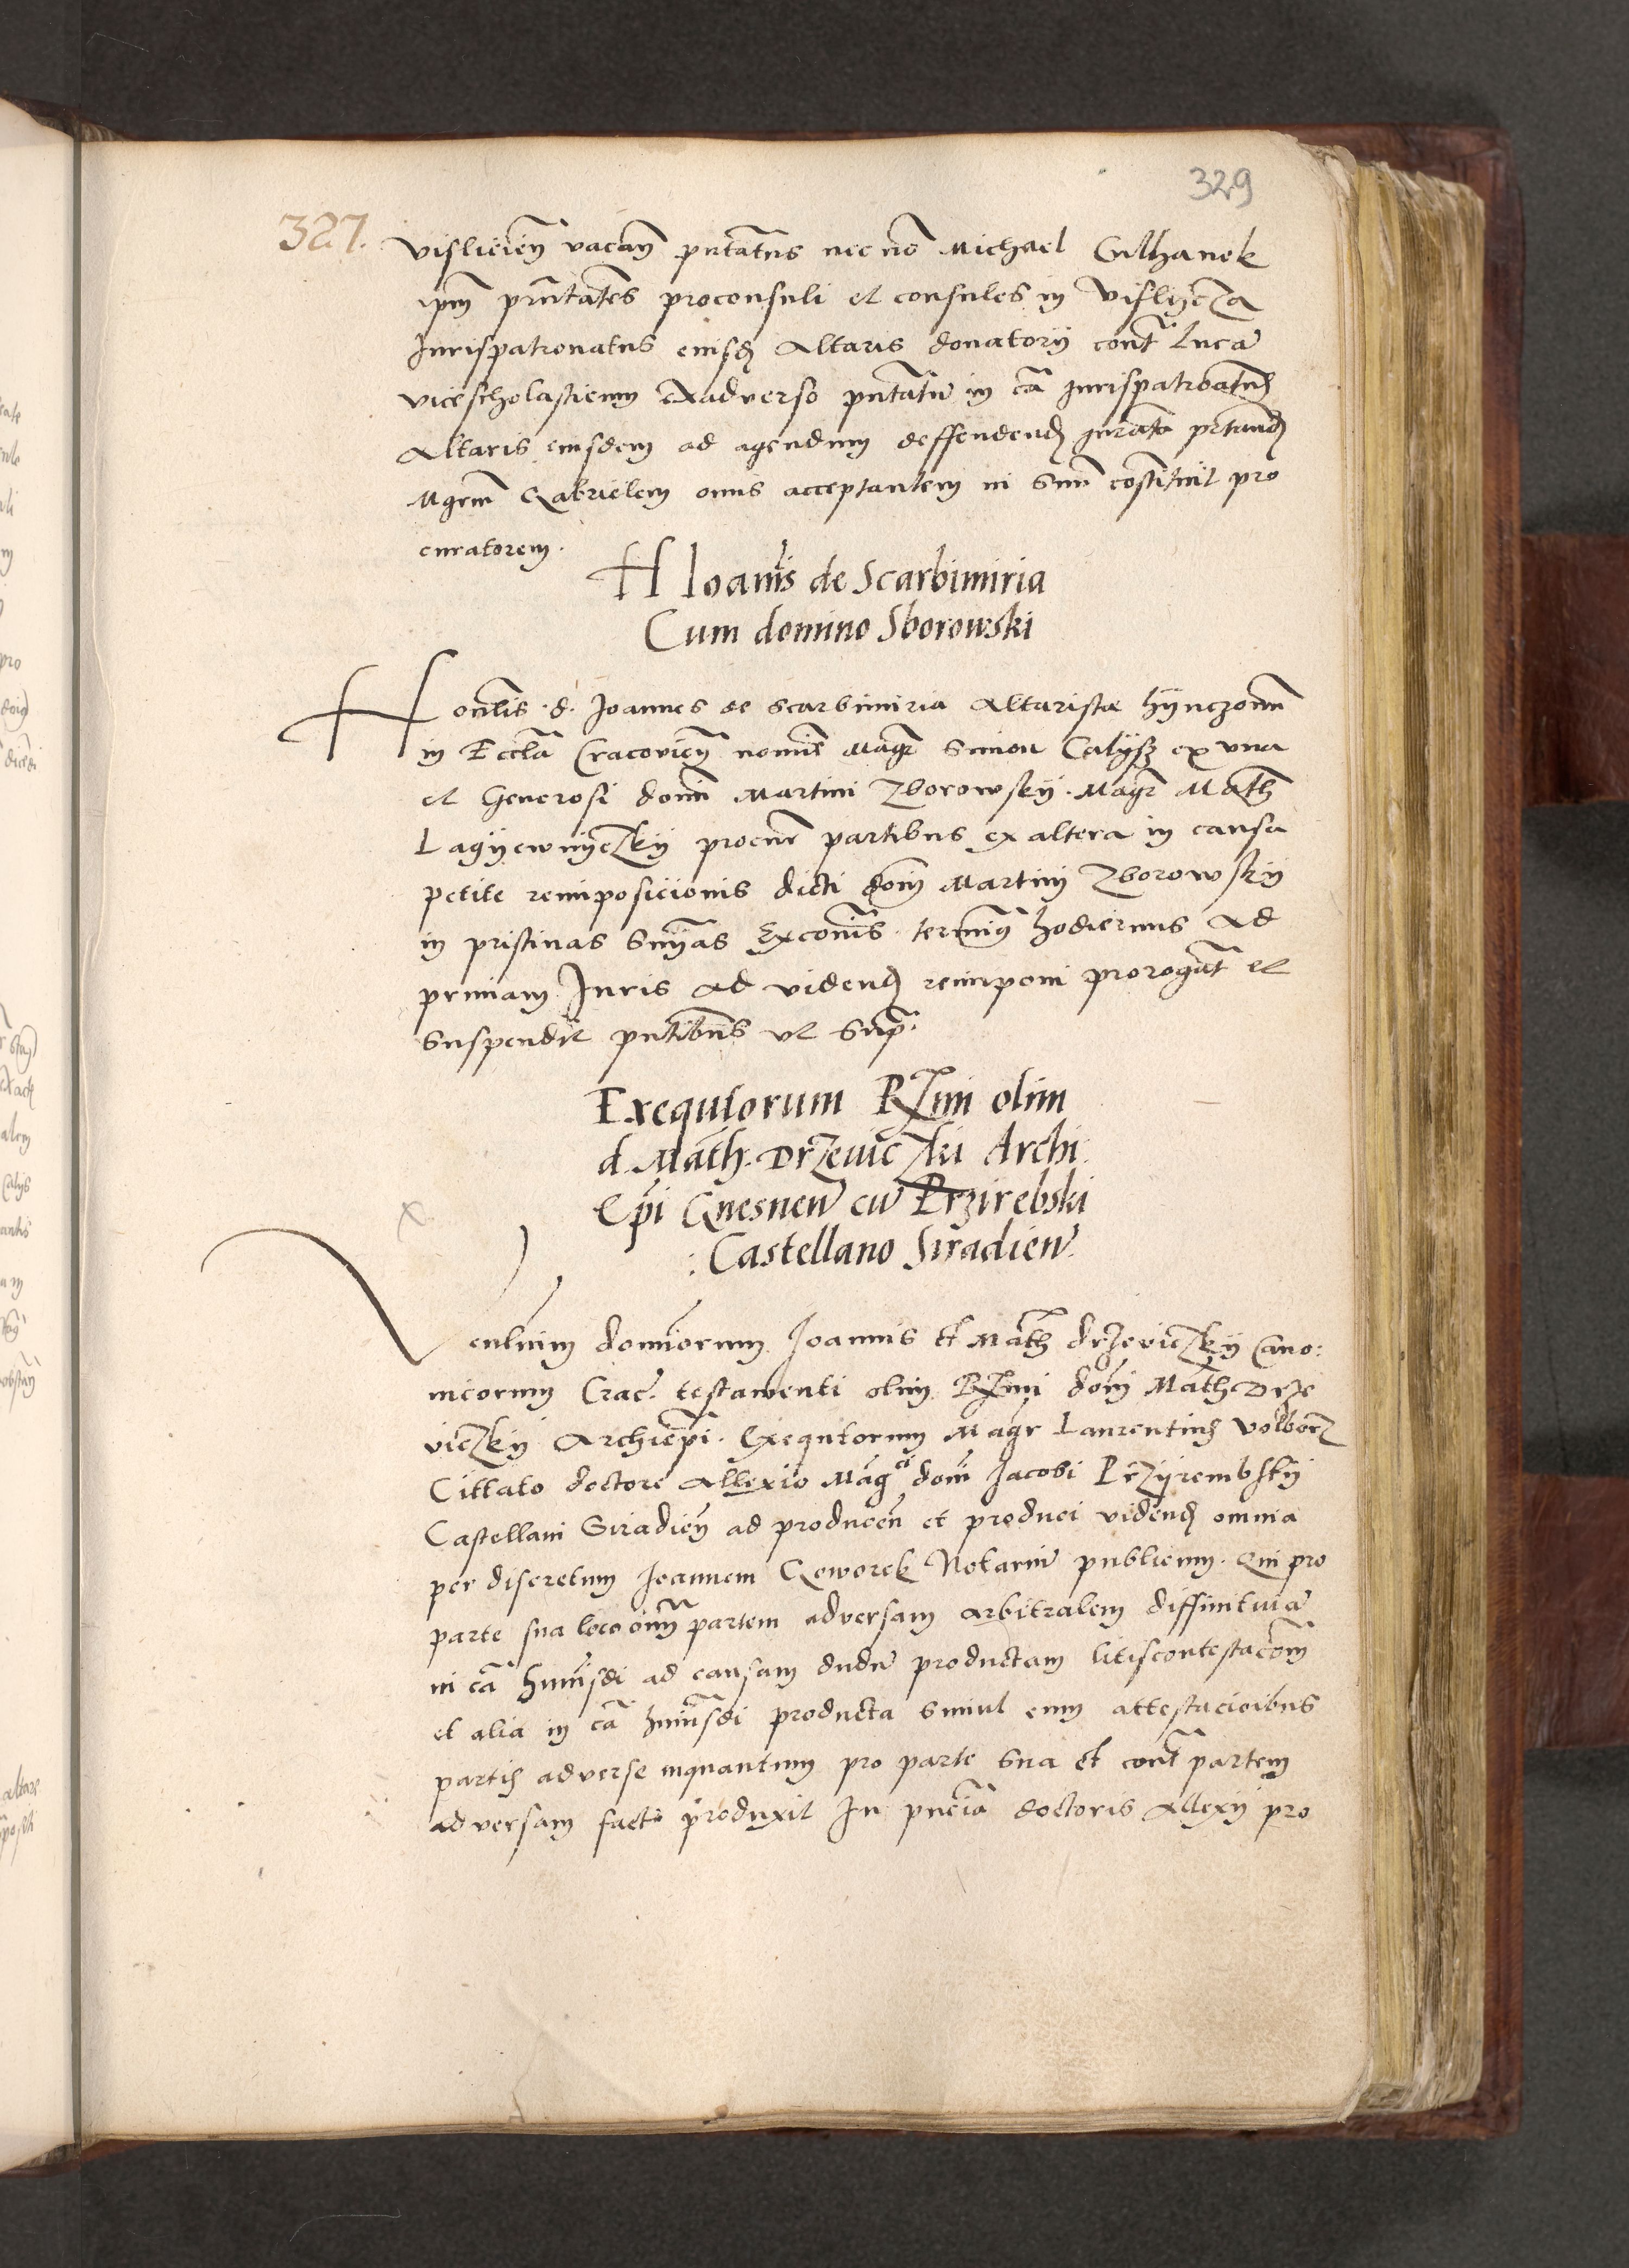 329
327.
vislicień vacań pntatus nec nō Michael Gilhanek
ipm̄ pn̄tātes proconsuli et consules in Vislycza
Jurispatronatus eiusdȝ Altaris donatorij cont̄ Lucā
vicescholasticum exadverso pntatū in cā Jurispatroatus
Altaris eiusdem ad agendum deffendendȝ
Mgrm̄ Gabrielem onus acceptantem in suū cōstituit pro
curatorem.
H Ioan̄is de Scarbimiria
Cum domino Sborowski
Honīlis d. Joannes de Scarbimiria Altarista
in Eccl̄a Cracovień nomīe Magr̄ Simon Calijsz ex vna
et Generosi domī Martini Zborowskij Magr̄ Math̄
Lagyewnyczkij procūr partibus ex altera in causa
petite reimposicionis dicti dom̄ Martini Zborowskij
in pristinas sn̄ias Excoīnis terminū hodiernus ad
primam Juris ad videndȝ reimponi prorogat̄ et
suspendit pn̄tibus vt supr̄a.
Exequtorum Rr̄mi olim
d. Māth. Drzeviczki Archi
Epī Gnesneñ cū Przirebski
Castellano Siradieñ
Venlium̄ dominorum Joannis et Math̄ drzeviczkij Cano:
nicorum Crac̄. testamenti olim Rr̄mi dom̄ Mathe Drze
viczkij Archiepī. Exequtorum Magr̄ Laurentius Volborz
Cittato doctore Allexio Mag^ci dom̄ Jacobi Przyrembskij
Castellani Siradień ad producen̄ et produci videndȝ omnia
per discretum Joannem Geworek Notariū publicum. Qui pro
parte sua loco oim̄ partem adversam arbitralem diffinitivā
in cā hmōi ad causam dudū productam litiscontestacōem
et alia in cā hmōi producta simul cum attestacioibus
partis adverse inquantum pro parte sua et cont̄ partem
adversam facit produxit In pn̄cia doctoris Allexij pro